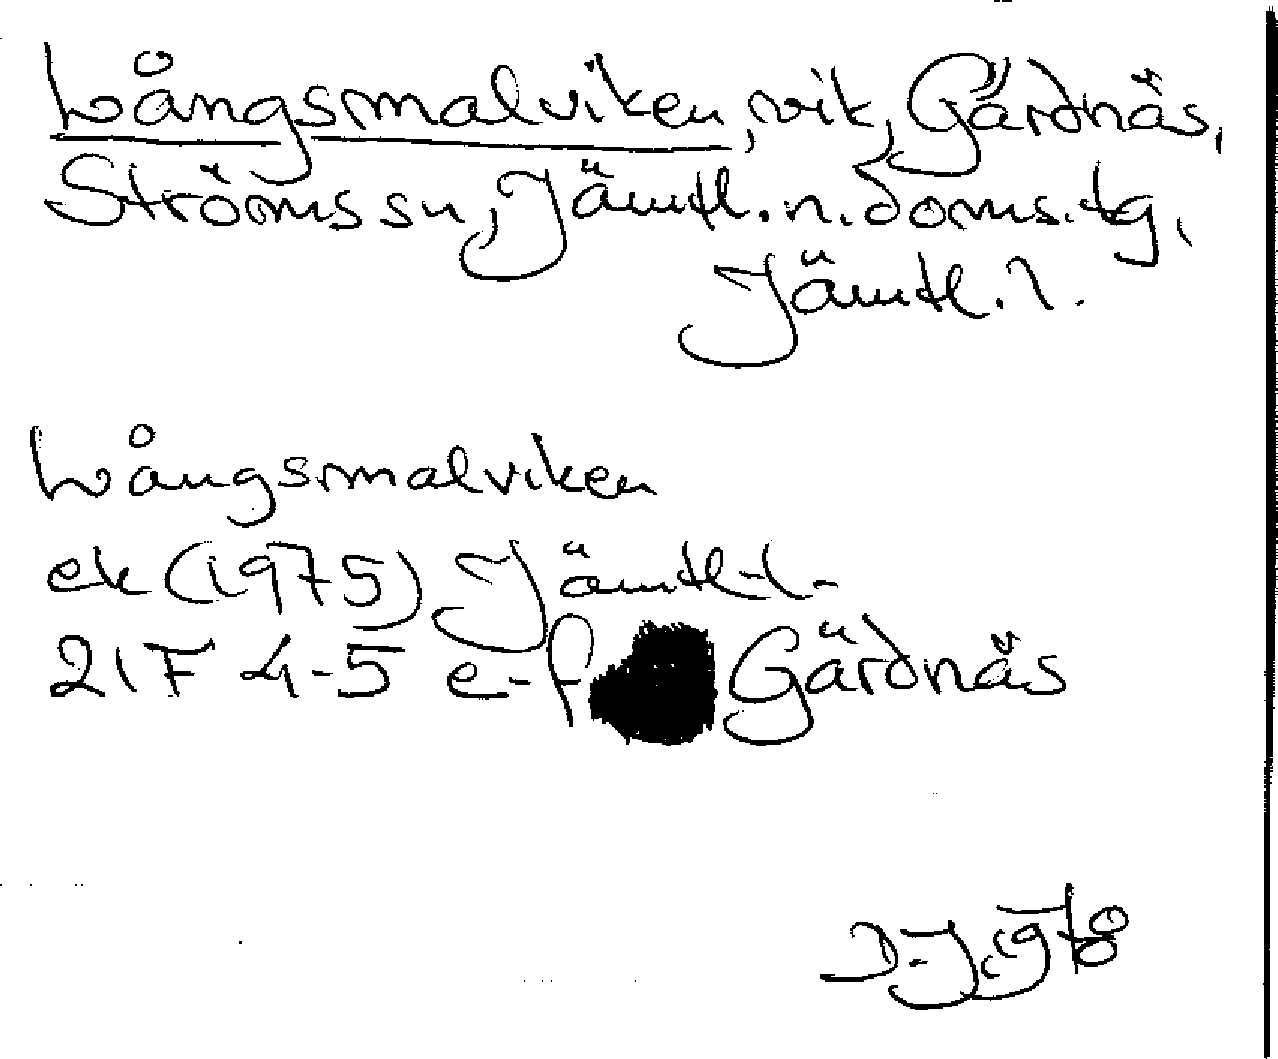 Långsmalviken, vik, Gärdnäs,
Ströms sn, Jämtl. n. doms. tg,
Jämtl. l.
Långsmalviken
ek (1975) Jämtl-l-
21F 4-5 e-f Gärdnäs
D-J 1978